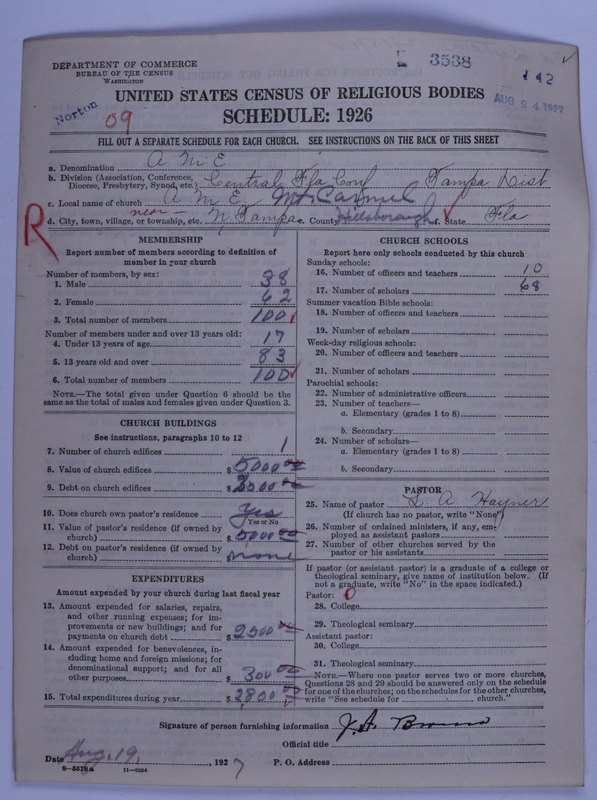 DEPARTMENT OF COMMERCE
BUREAU OF THE CENSUS
WASHINGTON
3538
142
AUG 24 1927
Norton
09
UNITED STATES CENSUS OF RELIGIOUS BODIES
SCHEDULE: 1926
FILL OUT A SEPARATE SCHEDULE FOR EACH CHURCH. SEE INSTRUCTIONS ON THE BACK OF THIS SHEET
a. Denomination A M E
b. Division (Association, Conference, Diocese, Presbytery, Synod, etc.) Central Fla Conf Tampa Dist
c. Local name of church A M E Mt Carmel
d. City, town, village, or township, etc. near N. Tampa e. County Hillsborough f. State Fla
R
MEMBERSHIP
Report number of members according to definition of
member in your church
Number of members, by sex:
1. Male 38
2. Female 62
3. Total number of members 100
Number of members under and over 13 years old:
4. Under 13 years of age 17
5. 13 years old and over 83
6. Total number of members 100
NOTE.—The total given under Question 6 should be the
same as the total of males and females given under Question 3.
CHURCH BUILDINGS
See instructions, paragraphs 10 to 12
7. Number of church edifices 1
8. Value of church edifices $ 5000 00
9. Debt on church edifices $ 3500 00
10. Does church own pastor's residence? Yes
Yes or No
11. Value of pastor's residence (if owned by
church) $ 5000 00
12. Debt on pastor's residence (if owned by
church) $ none
EXPENDITURES
Amount expended by your church during last fiscal year
13. Amount expended for salaries, repairs,
and other running expenses; for im-
provements or new buildings; and for
payments on church debt $ 2500 00
14. Amount expended for benevolences, in-
cluding home and foreign missions; for
denominational support; and for all
other purposes $ 300 00
15. Total expenditures during year $ 2800 00
CHURCH SCHOOLS
Report here only schools conducted by this church
Sunday schools:
16. Number of officers and teachers 10
17. Number of scholars 68
Summer vacation Bible schools:
18. Number of officers and teachers
19. Number of scholars
Week-day religious schools:
20. Number of officers and teachers
21. Number of scholars
Parochial schools:
22. Number of administrative officers
23. Number of teachers—
a. Elementary (grades 1 to 8)
b. Secondary
24. Number of scholars—
a. Elementary (grades 1 to 8)
b. Secondary
PASTOR
25. Name of pastor S. A. Hayner
(If church has no pastor, write "None")
26. Number of ordained ministers, if any, em-
ployed as assistant pastors
27. Number of other churches served by the
pastor or his assistants
If pastor (or assistant pastor) is a graduate of a college or
theological seminary, give name of institution below. (If
not a graduate, write "No" in the space indicated.)
Pastor: 0
28. College
29. Theological seminary
Assistant pastor:
30. College
31. Theological seminary
NOTE.—Where one pastor serves two or more churches,
Questions 28 and 29 should be answered only on the schedule
for one of the churches; on the schedules for the other churches,
write "See schedule for church."
Signature of person furnishing information J. A. Brown
Official title
Date Aug. 19, 1927 P. O. Address
8—5518a 11—9064